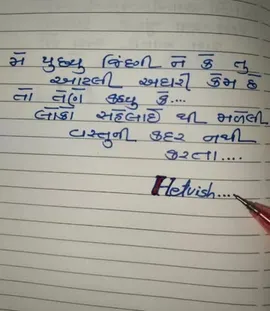 મે પુછ્યુ જિંદગી ને કે તુ
આટલી અઘરી કેમ છે
તો તેણે કહ્યુ કે....
લોકો સહેલાઈ થી મળેલી
વસ્તુની કદર નથી
કરતા....
Hetvish....